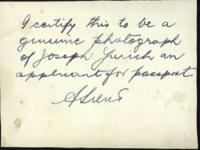 I certify this to be a
genuine photograph
of Joseph
an
applicant for passport